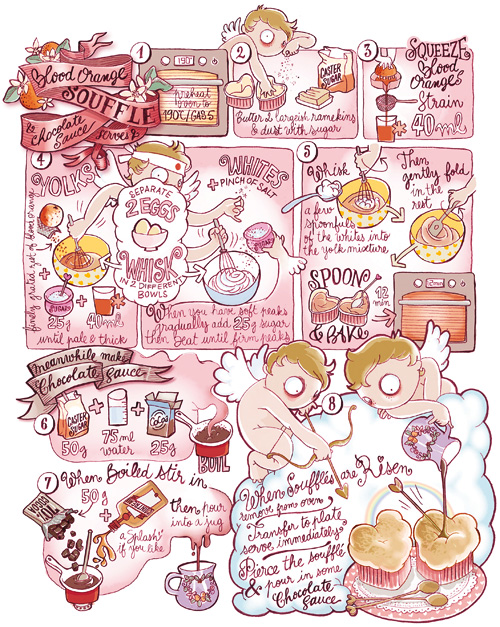 Blood Orange
SOUFFLÉ
& Chocolate
Sauce
serves 2
1
190°
preheat
oven to
190°C/GAS 5
2
CASTER
SUGAR
Butter 2 largeish ramekins
& dust with sugar
3
SQUEEZE
Blood
Oranges
Strain
40ml
4
YOLKS
finely grated zest of blood orange
+
+
SUGAR
25g
+
40ml
until pale & thick
SEPARATE
2 EGGS
WHISK
IN 2 DIFFERENT
BOWLS
WHITES
+ PINCH OF SALT
SUGAR
When you have soft peaks
gradually add 25g sugar
then beat until firm peaks
5
Whisk
a few
spoonfuls
of the whites into
the yolk mixture.
Then
gently fold
in the
rest
SPOON
& BAKE
12
min
Meanwhile make
Chocolate Sauce
6
CASTER
SUGAR
50g
+
75ml
water
+
COCOA
25g
BOIL
7
When Boiled stir in
50g
+
a 'Splash'
if you like
then pour
into a jug
8
When Soufflés are Risen
remove from oven
Transfer to plate
serve immediately.
Pierce the soufflé
& pour in some
Chocolate
Sauce